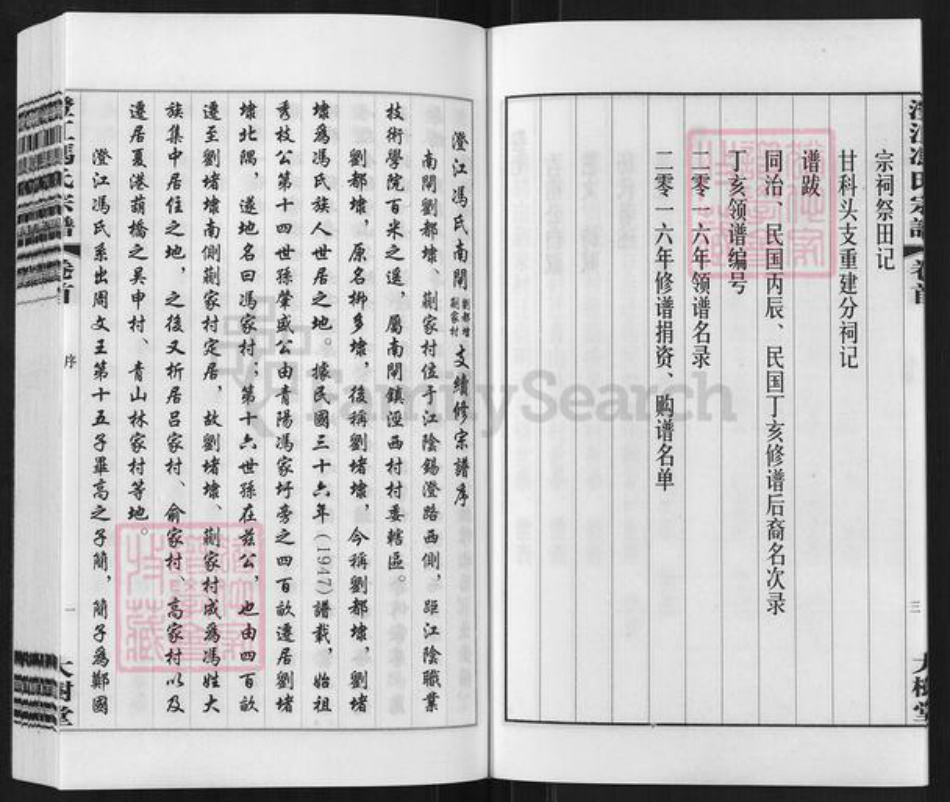 宗祠祭田记
甘科头支重建分祠记
谱跋
同治、民国丙辰、民国丁亥修谱后裔名次录
丁亥领谱编号
二零一六年领谱名录
二零一六年修谱捐资、购谱名单
三
大樹堂
澄江馮氏宗譜
卷首
澄江馮氏南閘劉都埭蒯家村支續修宗譜序
南閘劉都埭、蒯家村位于江陰錫澄路西側，距江陰職業
技術學院百米之遥，屬南閘鎮涇西村村委轄區。
劉都埭，原名柳多埭，後稱劉堵埭，今稱劉都埭，劉堵
埭爲馮氏族人世居之地。據民國三十六年（1947）譜載，始祖
秀枝公第十四世孫肇盛公由青陽馮家圩旁之四百畝遷居劉堵
埭北隅，遂地名曰馮家村；第十六世孫在兹公，也由四百畝
遷至劉堵埭南側蒯家村定居，故劉堵埭、蒯家村成爲馮姓大
族集中居住之地，之後又析居吕家村、俞家村、高家村以及
遷居夏港葫橋之吴申村、青山林家村等地。
澄江馮氏系出周文王第十五子畢高之子簡，簡子爲鄭國
序
一
大樹堂
馮氏宗譜
卷首
FamilySearch